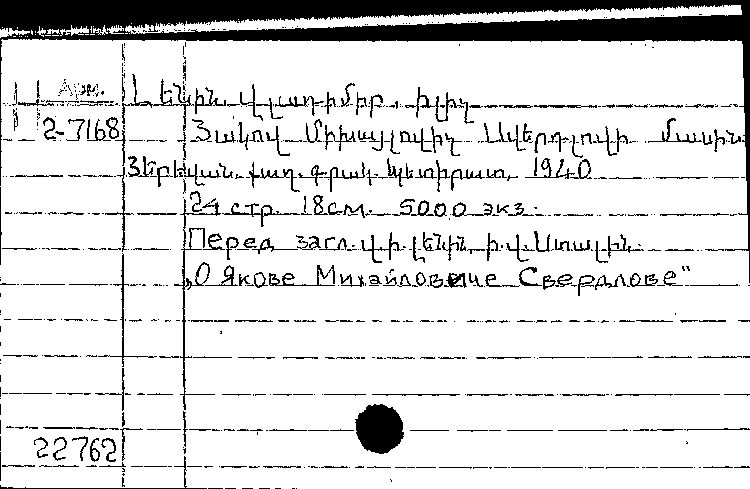 Арм. Լենին Վլադիմիր Իլիչ
2-7168 Յակով Միխայլովիչ Սվերդլովի մասին
Յերեվան. քաղ. գրակ. պետհրատ. 1940
24 стр. 18см. 5000 экз.
Перед загл. Վ. Ի. Լենին, Ի. Վ. Ստալին.
„О Якове Михайловиче Свердлове"
22762